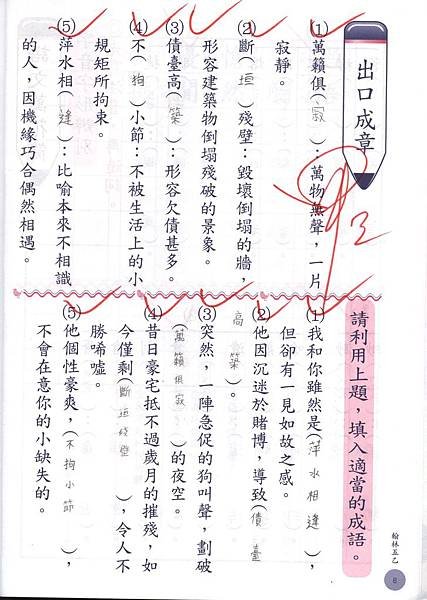 出口成章
⑴萬籟俱(寂):萬物無聲,一片
寂靜。
⑵斷(垣)殘壁:毀壞倒塌的牆,
形容建築物倒塌殘破的景象。
⑶債臺高(築):形容欠債甚多。
⑷不(拘)小節:不被生活上的小
規矩所拘束。
⑸萍水相(逢):比喻本來不相識
的人,因機緣巧合偶然相遇。
請利用上題,填入適當的成語。
⑴我和你雖然是(萍水相逢),
但卻有一見如故之感。
⑵他因沉迷於賭博,導致(債臺
高築)。
⑶突然,一陣急促的狗叫聲,劃破
(萬籟俱寂)的夜空。
⑷昔日豪宅抵不過歲月的摧殘,如
今僅剩(斷垣殘壁),令人不
勝唏噓。
⑸他個性豪爽,(不拘小節),
不會在意你的小缺失的。
翰林五乙
8